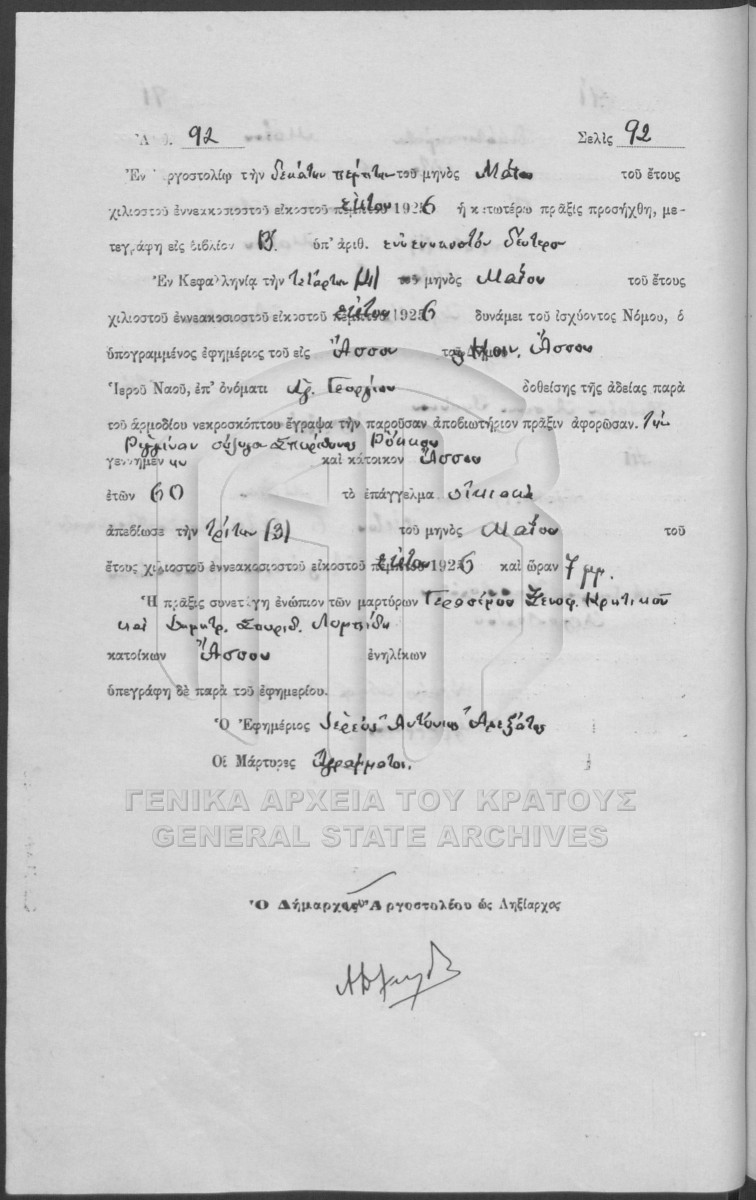 Ἀ θ. 92 Σελὶς 92
Ἐν Ἀργοστολίῳ τὴν δεκάτην πέμπτην τοῦ μηνὸς Μάϊου τοῦ ἔτους
χιλιοστοῦ ἐννεακοσιοστοῦ εἰκοστοῦ ἕκτου 1926 ἡ κατωτέρω πρᾶξις προσήχθη, με-
τεγράφη εἰς βιβλίον Β΄. ὑπ' ἀριθ. ἐνενηκοστόν δεύτερον
Ἐν Κεφαλληνίᾳ τὴν τετάρτην (4) τοῦ μηνὸς Μαΐου τοῦ ἔτους
χιλιοστοῦ ἐννεακοσιοστοῦ εἰκοστοῦ ἕκτου 1926 δυνάμει τοῦ ἰσχύοντος Νόμου, ὁ
ὑπογραμμένος ἐφημέριος τοῦ εἰς Ἄσσον τῆς Κοιν. Ἄσσου
Ἱεροῦ Ναοῦ, ἐπ' ὀνόματι Ἁγ. Γεωργίου δοθείσης τῆς ἀδείας παρὰ
τοῦ ἁρμοδίου νεκροσκόπτου ἔγραψα τὴν παροῦσαν ἀποβιωτήριον πρᾶξιν ἀφορῶσαν. τὴν
σύζυγα Σπυρίδωνος
γεννημέν ην καὶ κάτοικον Ἄσσου
ἐτῶν 60 τὸ ἐπάγγελμα οἰκιακά
ἀπεβίωσε τὴν τρίτην (3) τοῦ μηνὸς Μαΐου τοῦ
ἔτους χιλιοστοῦ ἐννεακοσιοστοῦ εἰκοστοῦ ἕκτου 1926 καὶ ὥραν 7 μμ.
Ἡ πρᾶξις συνετάγη ἐνώπιον τῶν μαρτύρων Γερασίμου Ξενοφ. Κρητικοῦ
καὶ Δημητρ. Σπυριδ.
κατοίκων Ἄσσου ἐνηλίκων
ὑπεγράφη δὲ παρὰ τοῦ ἐφημερίου.
Ὁ Ἐφημέριος ἱερεὺς Ἀντώνιος Ἀλεξάτος
Οἱ Μάρτυρες ἀγράμματοι.
ΓΕΝΙΚΑ ΑΡΧΕΙΑ ΤΟΥ ΚΡΑΤΟΥΣ
GENERAL STATE ARCHIVES
Ὁ Δήμαρχος Ἀργοστολίου ὡς Ληξίαρχος